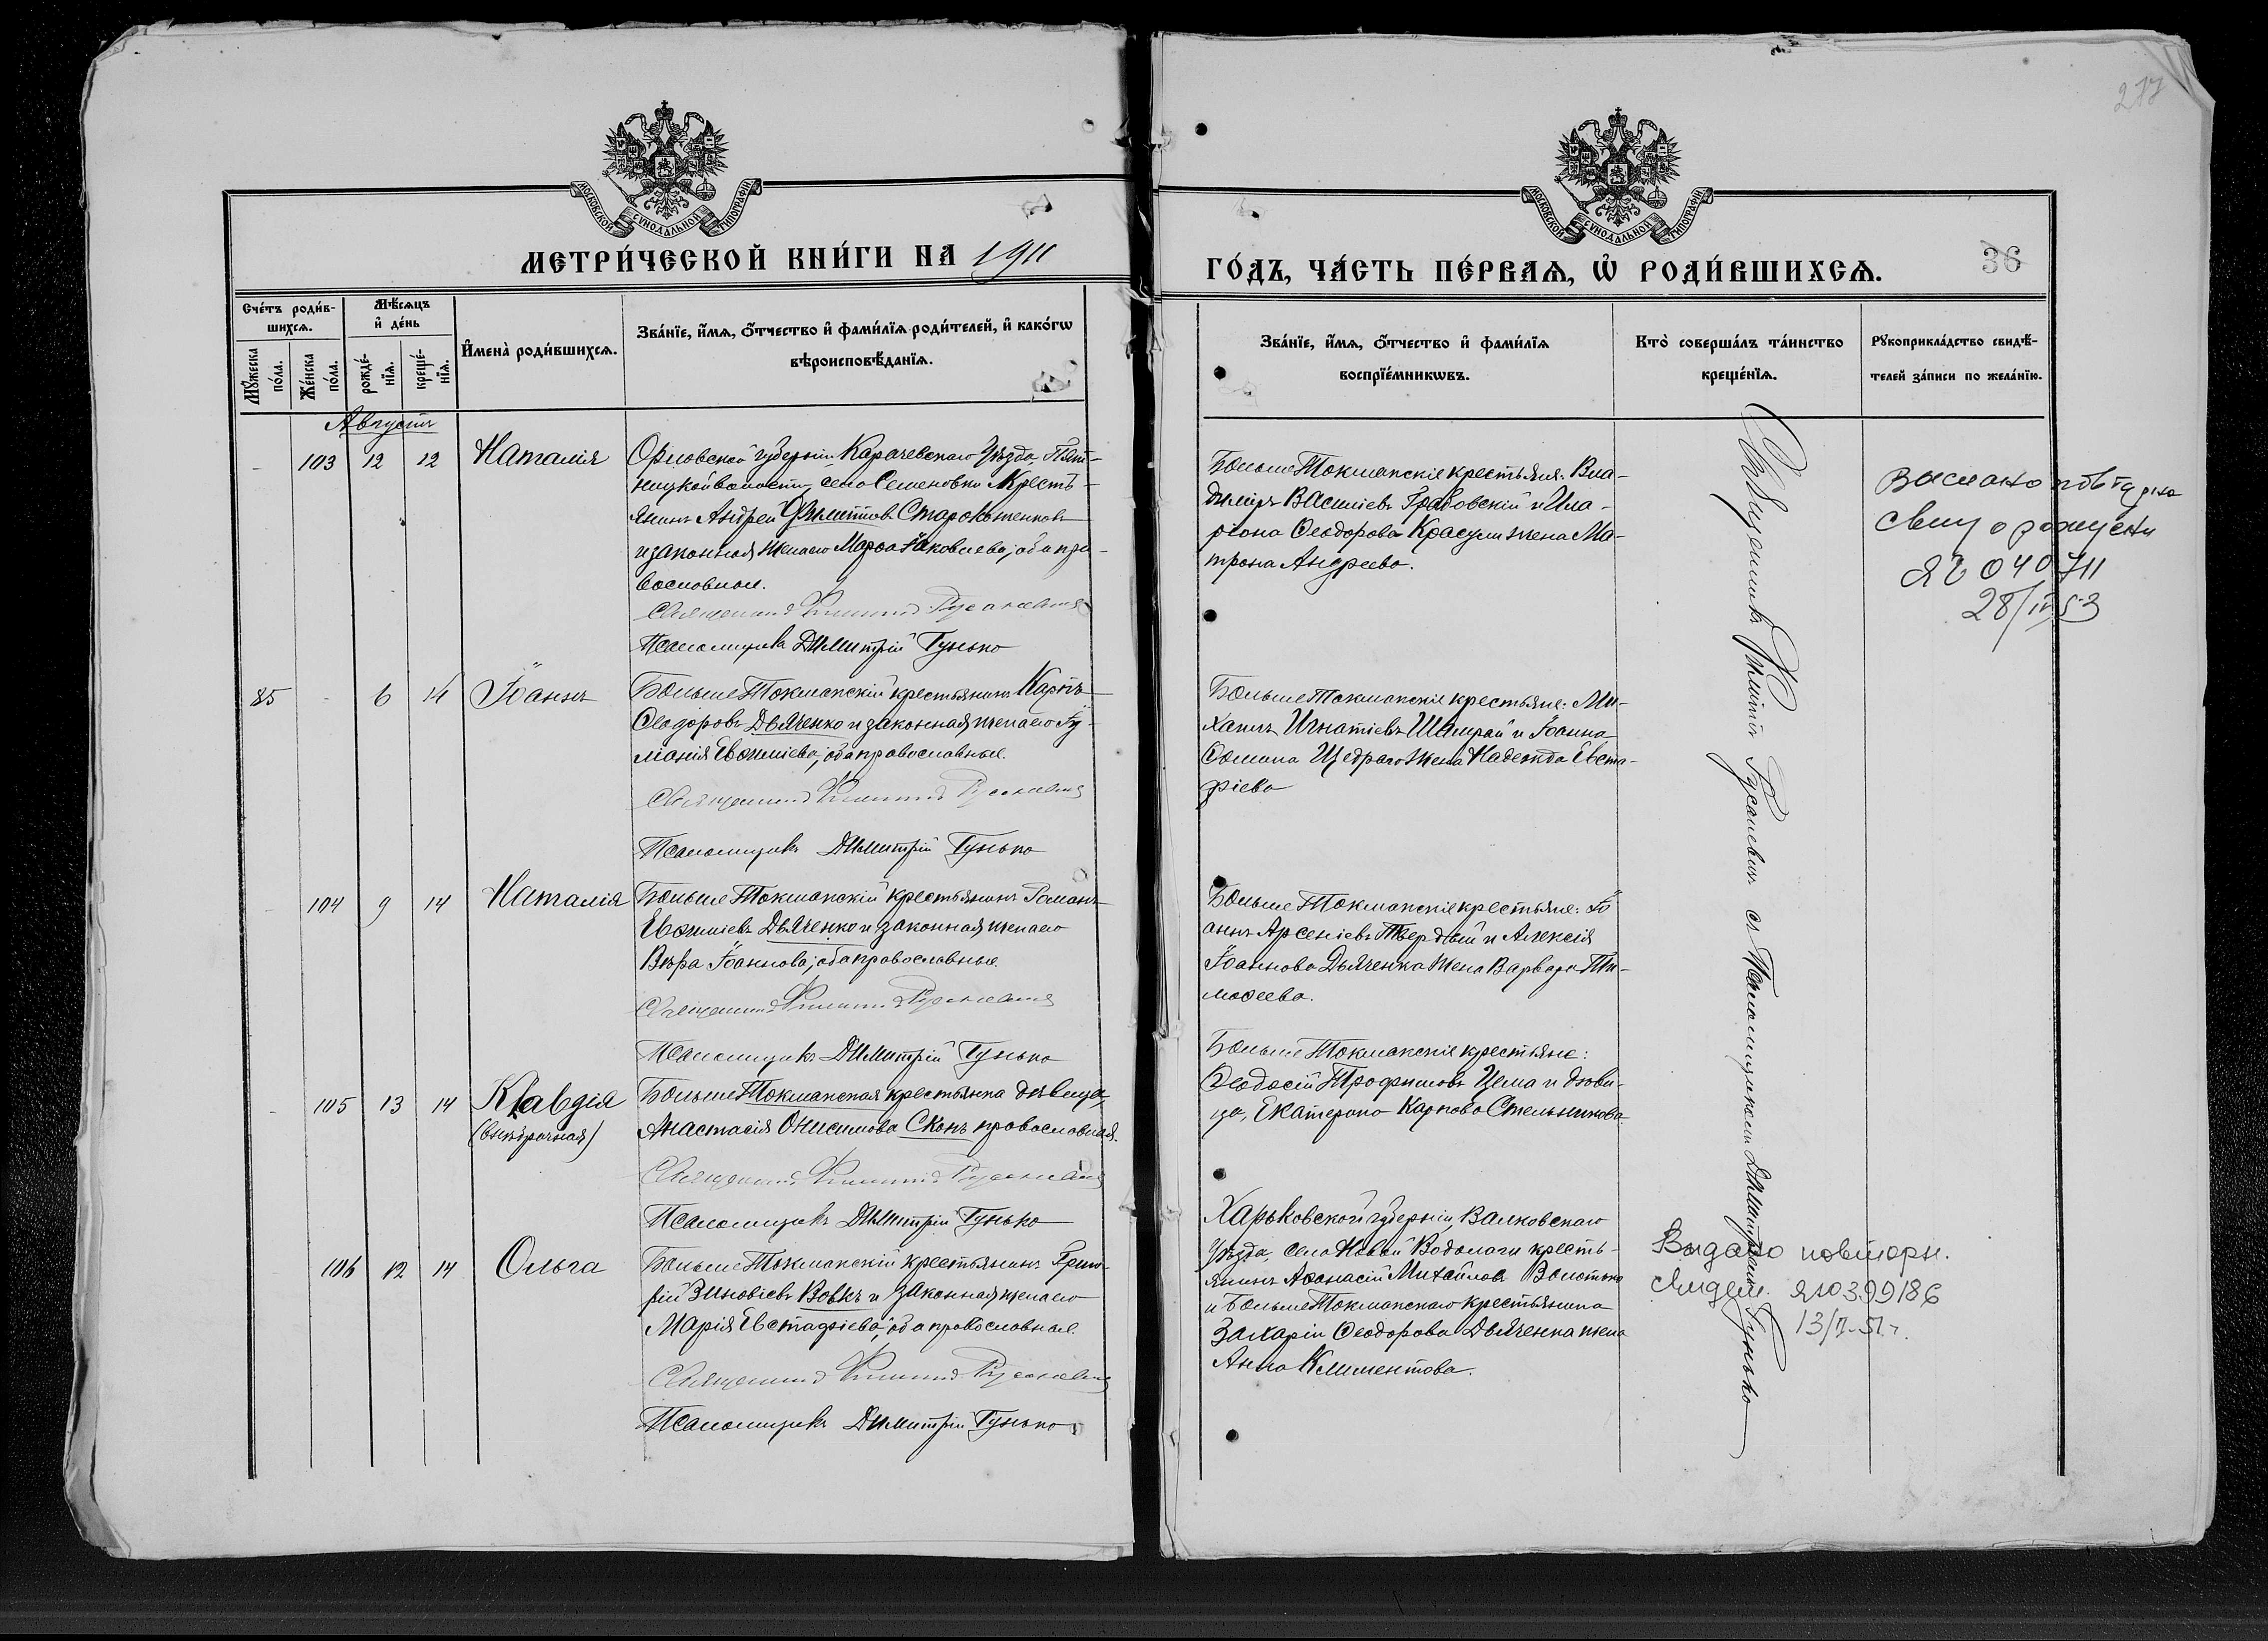 277
МОСКОВСКОЙ СѴНОДАЛЬНОЙ ТИПОГРАФІИ
МЕТРИ́ЧЕСКОЙ КНИ́ГИ НА 1911
Сче́тъ роди́в-
шихсѧ.
Мѣ́сѧцъ
и҆ де́нь
Мꙋ́жеска
по́ла.
Же́нска
по́ла.
рожде́-
нїѧ.
креще́-
нїѧ.
И҆мена̀ роди́вшихсѧ.
Зва́нїе, и҆́мѧ, ѻ҆́тчество и҆ фами́лїѧ роди́телей, и҆ како́гѡ
вѣроисповѣ́данїѧ.
Августъ
- 103 12 12 Наталія
Орловской губерніи, Карачевскаго уѣзда, Пят-
ницкой волости, села Семеновки кресть-
янинъ Андрей Филипповъ Старокоженковъ
и законная жена его Марѳа Іаковлева; оба пра-
вославные.
Священникъ Филиппъ Русаневичъ
Псаломщикъ Димитрій Гунько
85 - 6 14 Іоаннъ
Больше Токмакскій крестьянинъ Карпъ
Ѳеодоровъ Дьяченко и законная жена его Іу-
лианія Евѳиміева; оба православные.
Священникъ Филиппъ Русаневичъ
Псаломщикъ Димитрій Гунько
- 104 9 14 Наталія
Больше Токмакскій крестьянинъ Романъ
Евѳиміевъ Дьяченко и законная жена его
Вѣра Іоаннова; оба православные.
Священникъ Филиппъ Русаневичъ
Псаломщикъ Димитрій Гунько
- 105 13 14 Клавдія
(внѣбрачная)
Больше Токмакская крестьянка дѣвица,
Анастасія Онисимова Сконъ православная.
Священникъ Филиппъ Русаневичъ
Псаломщикъ Димитрій Гунько
106 12 14 Ольга
Больше Токмакскій крестьянинъ Григо-
рій Зиновіевъ Вовкъ и законная жена его
Марія Евстафіева; оба православные.
Священникъ Филиппъ Русаневичъ
Псаломщикъ Димитрій Гунько
МОСКОВСКОЙ СѴНОДАЛЬНОЙ ТИПОГРАФІИ
ГО́ДЪ, ЧА́СТЬ ПЕ́РВАѦ, Ѡ҆ РОДИ́ВШИХСѦ.
36
Зва́нїе, и҆́мѧ, ѻ҆́тчество и҆ фами́лїѧ
воспрїе́мникѡвъ.
Кто̀ соверша́лъ та́инство
креще́нїѧ.
Рꙋкоприкла́дство свидѣ́-
телей за́писи по жела́нїю.
Больше Токмакскіе крестьяне: Вла-
диміръ Василіевъ Грабовскій и Ила-
ріона Ѳеодорова Красули жена Ма-
трона Андреева.
Больше Токмакскіе крестьяне: Ми-
хаилъ Игнатіевъ Шамрай и Іоанна
Ѳомина Щедраго жена Надежда Евста-
фіева
Больше Токмакскіе крестьяне: Іо
аннъ Арсеніевъ Твердый и Алексія
Іоаннова Дьяченка жена Варвара Ти-
моѳеева.
Больше Токмакскіе крестьяне:
Ѳеодосій Трофимовъ Цема и дѣви-
ца, Екатерина Карпова Стельникова.
Харьковской губерніи, Валковскаго
уѣзда, села Новой Водолаги кресть-
янинъ Аѳанасій Михайловъ
и Больше Токмакскаго крестьянина
Захаріи Ѳеодорова Дьяченка жена
Анна Климентова.
Священникъ Филиппъ Русаневичъ съ Псаломщикомъ Димитріемъ Гунько
выслано повторно
свид о рожден
ЯГ 040711
28/IV 53
Выдано повторн.
свидет. ЯЮ 399186
13/V-51 г.